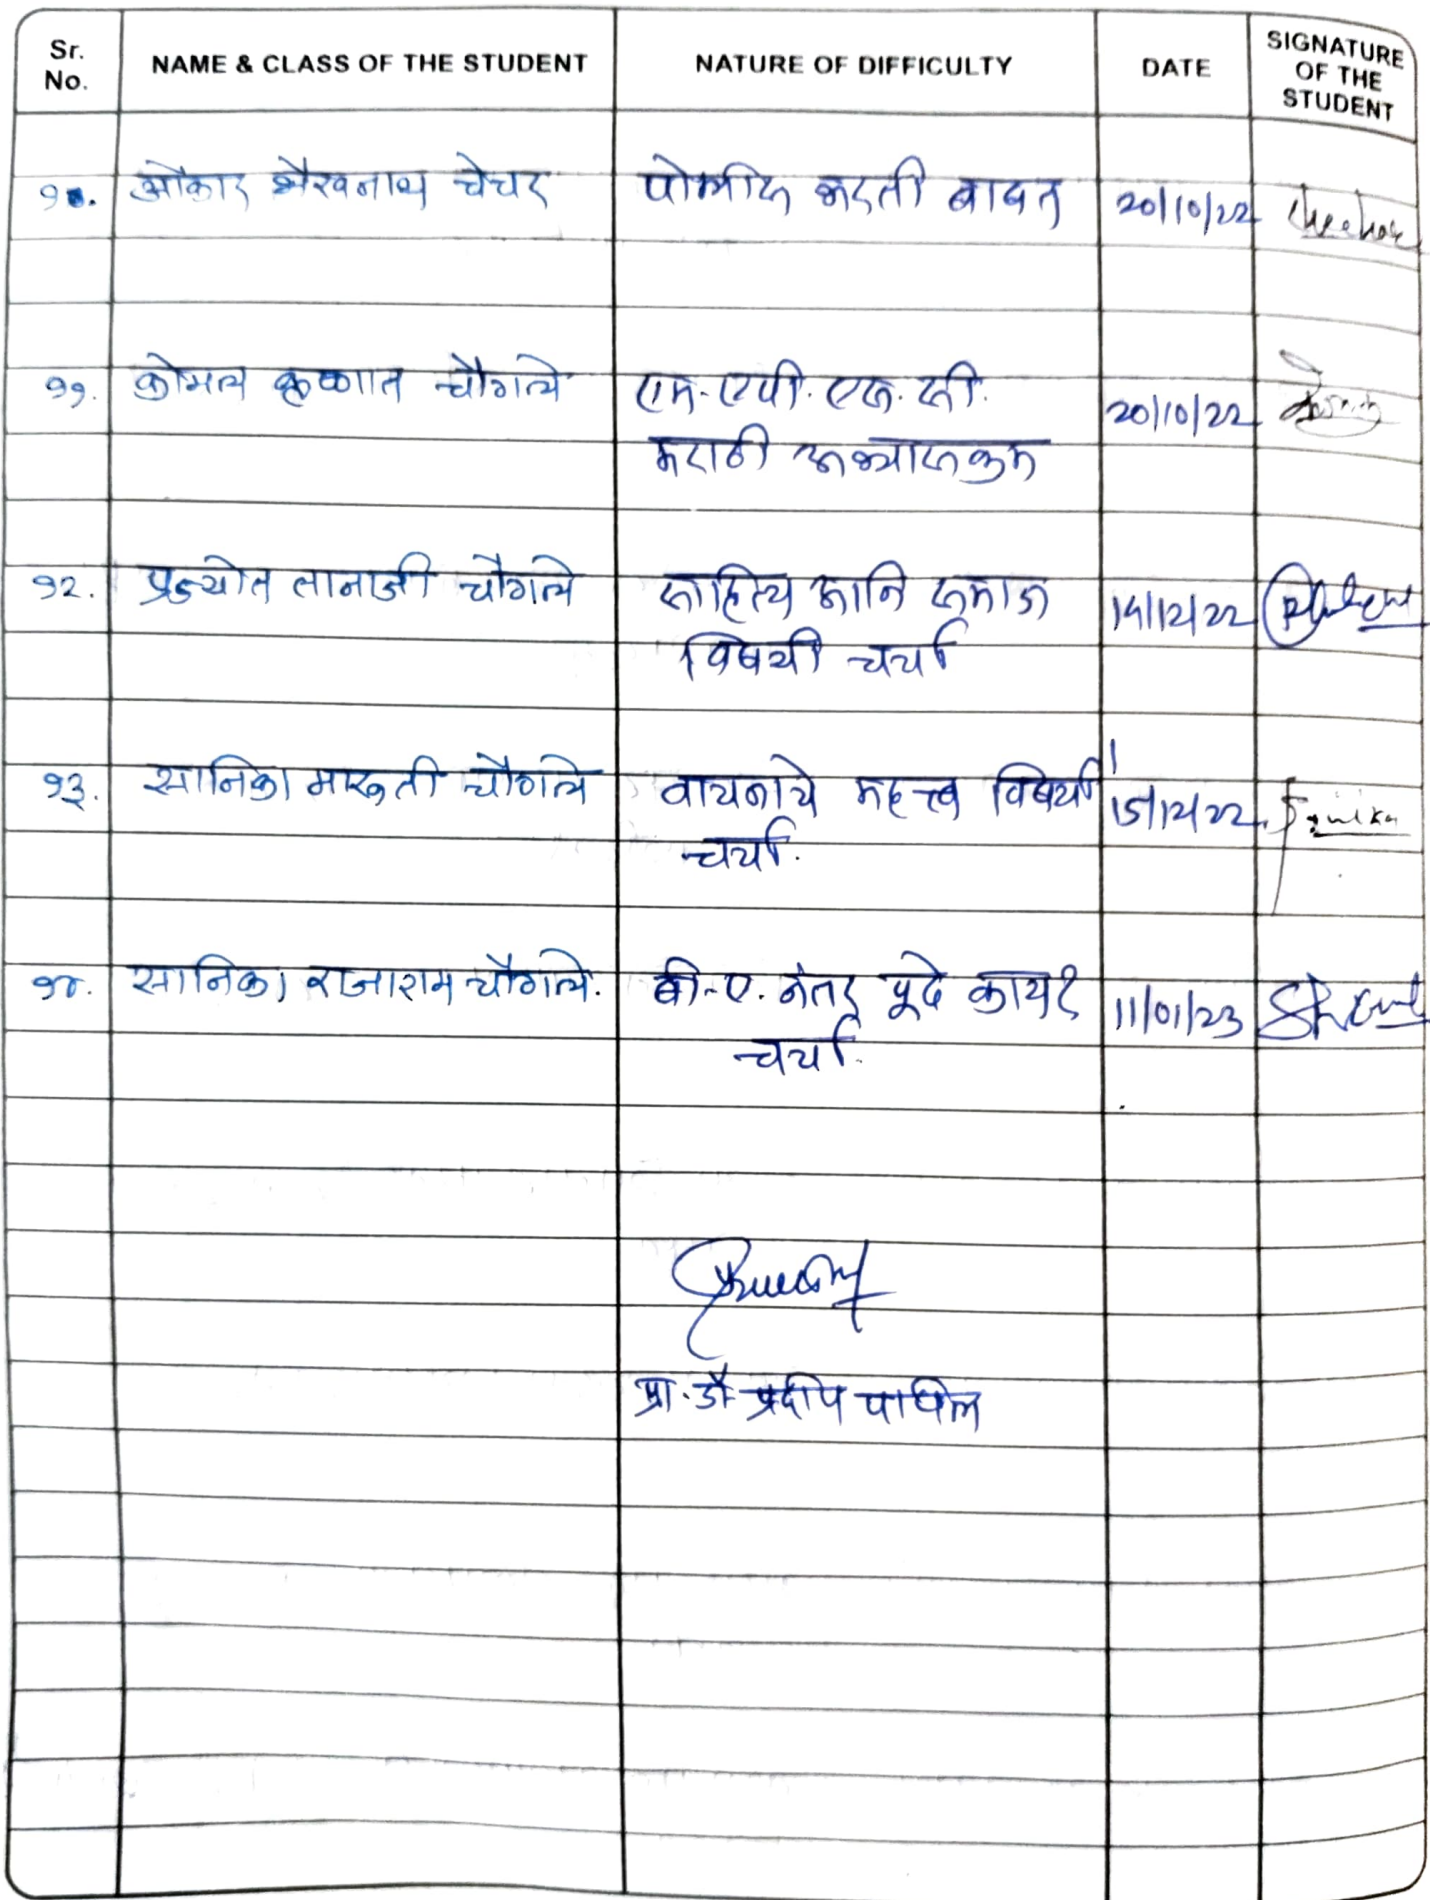 Sr. No. NAME & CLASS OF THE STUDENT NATURE OF DIFFICULTY DATE SIGNATURE OF THE STUDENT
१०. ओंकार भैरवनाथ चेचर पोलीस भरती बाबत 20/10/22
११. कोमल कृष्णात चौगले एम.एपी.एस.सी. 20/10/22
मराठी अभ्यासक्रम
१२. प्रज्योत तानाजी चौगले साहित्य आनि समाज 14/12/22
विषयी चर्चा
१३. सानिका मारुती चौगले वाचनाचे महत्त्व विषयी 15/12/22 Sanika
चर्चा.
१४. सानिका राजाराम चौगले. बी.ए. नंतर पूढे काय? 11/01/23
चर्चा.
प्रा. डॉ. प्रदीप पाटील